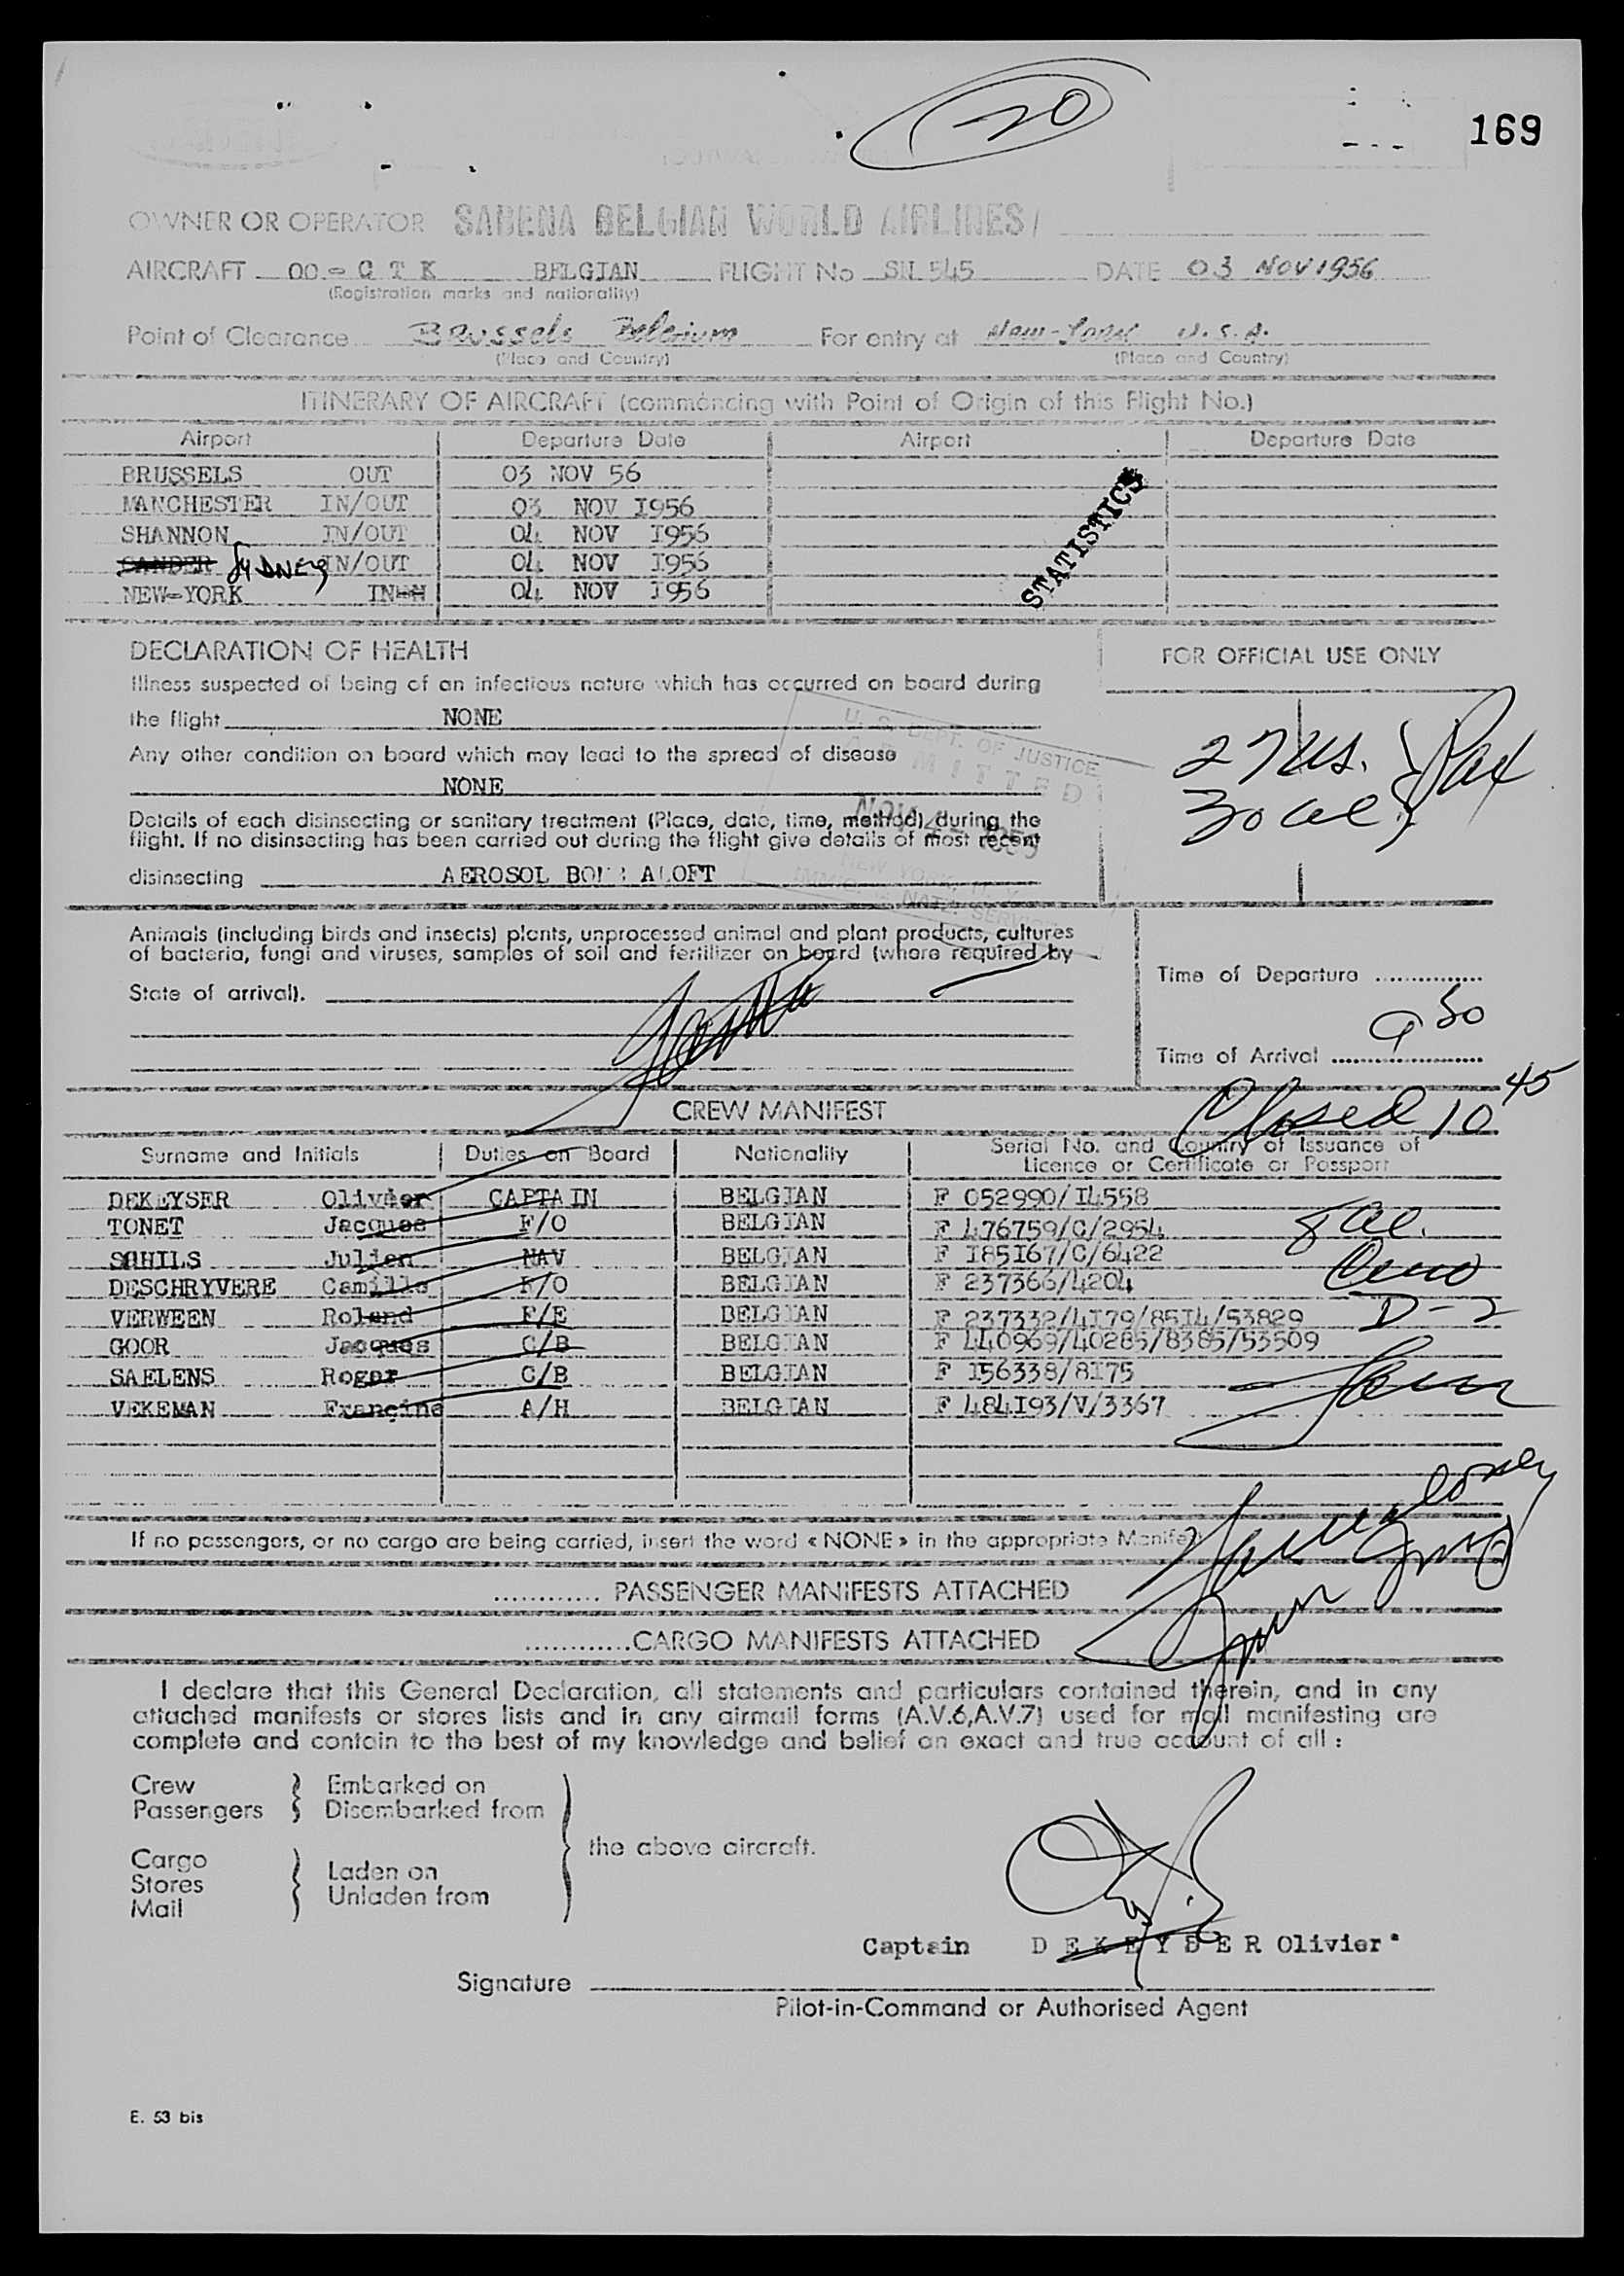 20
169
OWNER OR OPERATOR SABENA BELGIAN WORLD AIRLINES/
AIRCRAFT OO-CTK BELGIAN FLIGHT No SN 545 DATE 03 NOV 1956
(Registration marks and nationality)
Point of Clearance Brussels Belgium For entry at New-York U.S.A.
(Place and Country) (Place and Country)
ITINERARY OF AIRCRAFT (commencing with Point of Origin of this Flight No.)
Airport Departure Date Airport Departure Date
BRUSSELS OUT 03 NOV 56
MANCHESTER IN/OUT 03 NOV I956
SHANNON IN/OUT 04 NOV I956
GANDER SYDNEY IN/OUT 04 NOV I956
NEW-YORK IN 04 NOV I956
STATISTICS
DECLARATION OF HEALTH
FOR OFFICIAL USE ONLY
Illness suspected of being of an infectious nature which has occurred on board during
the flight NONE
Any other condition on board which may lead to the spread of disease
NONE
Details of each disinsecting or sanitary treatment (Place, date, time, method) during the
flight. If no disinsecting has been carried out during the flight give details of most recent
disinsecting AEROSOL BOMB ALOFT
U. S. DEPT. OF JUSTICE
ADMITTED
NOV 4 - 1956
NEW YORK, N. Y.
IMMIG. & NATZ. SERVICE
27 US. } Pax
30 al
Animals (including birds and insects) plants, unprocessed animal and plant products, cultures
of bacteria, fungi and viruses, samples of soil and fertilizer on board (where required by
State of arrival).
Time of Departure
Time of Arrival 9 30
Closed 10 45
CREW MANIFEST
Surname and Initials Duties on Board Nationality Serial No. and Country of Issuance of
Licence or Certificate or Passport
DEKEYSER Olivier CAPTAIN BELGIAN F 052990/I4558
TONET Jacques F/O BELGIAN F 476759/C/2954
SAHILS Julien NAV BELGIAN F I85I67/C/6422
DESCHRYVERE Camille R/O BELGIAN F 237366/4204
VERWEEN Roland F/E BELGIAN F 237332/4I79/85I4/53829
GOOR Jacques C/B BELGIAN F 440969/40285/8385/53509
SAELENS Roger C/B BELGIAN F I56338/8I75
VEKEMAN Françine A/H BELGIAN F 484I93/V/3367
8 al.
D-2
If no passengers, or no cargo are being carried, insert the word « NONE » in the appropriate Manifest
............ PASSENGER MANIFESTS ATTACHED
............CARGO MANIFESTS ATTACHED
I declare that this General Declaration, all statements and particulars contained therein, and in any
attached manifests or stores lists and in any airmail forms (A.V.6,A.V.7) used for mail manifesting are
complete and contain to the best of my knowledge and belief an exact and true account of all :
Crew Embarked on
Passengers Disembarked from
the above aircraft.
Cargo Laden on
Stores Unladen from
Mail
Captain DEKEYSER Olivier
Signature
Pilot-in-Command or Authorised Agent
E. 53 bis